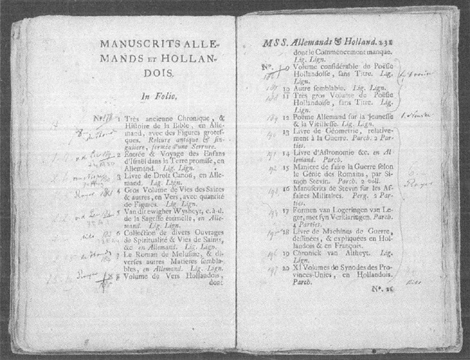 MANUSCRITS ALLE-
MANDS ET HOLLAN-
DOIS.
In Folio.
1 Très ancienne Chronique, &
Histoire de la Bible, en Alle-
mand, avec des Figures grotes-
ques. Relieure antique & sin-
guliere, fermée d'une Serrure.
2 Entrée & Voyage des Enfans
d'Israël dans la Terre promise, en
Allemand. Lig. Lign.
3 Livre de Droit Canon, en Alle-
mand. Lig. Lign.
4 Gros Volume de Vies des Saints
& autres, en Vers, avec quantité
de Figures. Lig. Lign.
5 Van die ewigher Wysheyt, c. à d.
de la Sagesse éternelle, en Alle-
mand. Lig. Lign.
6 Collection de divers Ouvrages
de Spiritualité & Vies de Saints,
en Allemand. Lig. Lign.
7 Le Roman de Melusine, &
diverses autres Matieres sembla-
bles, en Allemand. Lig. Lign.
8 Volume de Vers Hollandois,
dont
MSS. Allemands & Holland. 235
dont le Commencement manque.
Lig. Lign.
N°. 9 Volume considérable de Poësie
Hollandoise, sans Titre. Lig.
Lign.
10 Autre semblable. Lig. Lign.
11 Très gros Volume de Poësie
Hollandoise, sans Titre. Lig.
Lign.
12 Poëme Allemand sur la Jeunesse
& la Vieillesse. Lig. Lign.
13 Livre de Géometrie, relative-
ment à la Guerre. Parch. 2 Par-
ties.
14 Livre d'Astronomie &c. en Al-
lemand. Parch.
15 Maniere de faire la Guerre selon
le Génie des Romains, par Si-
mon Stevin. Parch. 2 voll.
16 Manuscrits de Stevin sur les Af-
faires Militaires. Perg. 2 Par-
ties.
17 Formen van Logeringen van Le-
ger, met syn Verklaringen. Parch.
4 Parties.
18 Livre de Machines de Guerre,
dessinées, & expliquées en Hol-
landois & en François.
19 Chronick van Altheyt. Lig.
Lign.
20 XI Volumes de Synodes des Pro-
vinces-Unies, en Hollandois.
Parch.
N°. 21